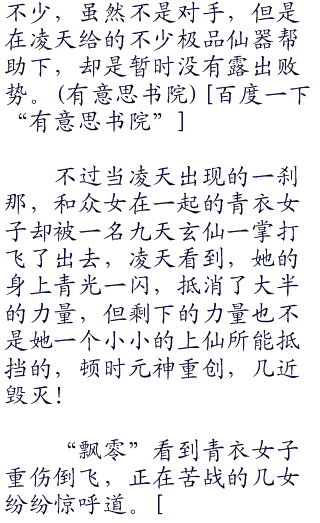 不少，虽然不是对手，但是
在凌天给的不少极品仙器帮
助下，却是暂时没有露出败
势。(有意思书院) [百度一下
“有意思书院” ]
不过当凌天出现的一刹
那，和众女在一起的青衣女
子却被一名九天玄仙一掌打
飞了出去，凌天看到，她的
身上青光一闪，抵消了大半
的力量，但剩下的力量也不
是她一个小小的上仙所能抵
挡的，顿时元神重创，几近
毁灭！
“飘零”看到青衣女子
重伤倒飞，正在苦战的几女
纷纷惊呼道。[